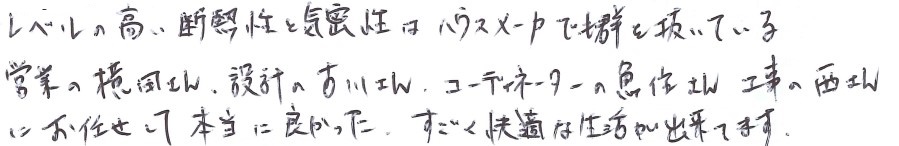 レベルの高い断熱性と気密性はハウスメーカで群を抜いている
営業の横田さん、設計の古川さん、コーディネーターの魚住さん 工事の西さん
にお任せして本当に良かった。すごく快適な生活が出来てます。